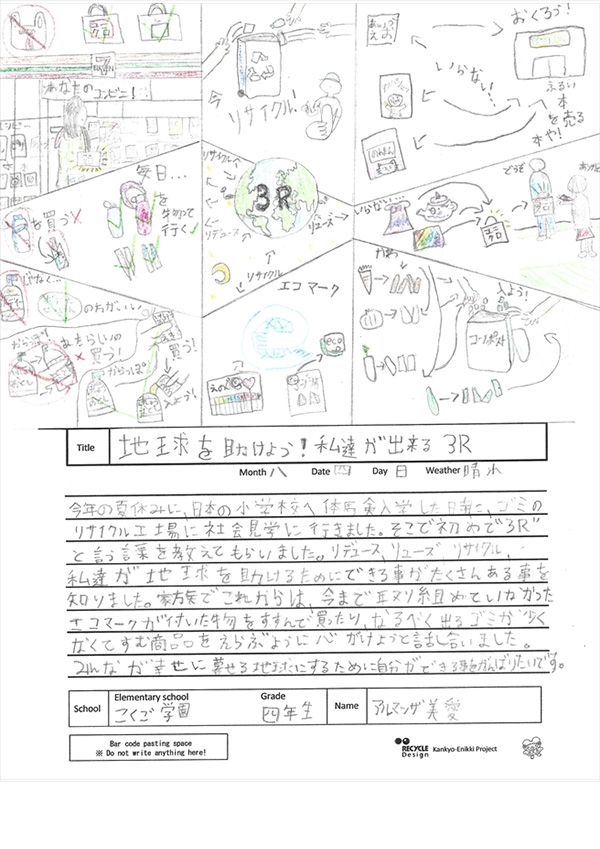 7
ELEVEN
あなたのコンビニ!
今
リサイクル!
あいうえお
おくろう!
いらない!
ふるい
本
を売る
本や!
毎日...
を
持って
行く
を買う
リサイクル
3R
リデュース
リューズ
リサイクル
いらない...
どうぞ
じゃなくて
のちがい
買う!
からっぽ
買う!
エコマーク
eco
えのぐ
かわ
入よう!
コンポスト
Title
地球を助けよう!私達が出来る 3R
Month 八 Date 四 Day 日 Weather 晴れ
今年の夏休みに、日本の小学校へ体験入学した時に、ゴミの
リサイクル工場に社会見学に行きました。そこで初めて"3R"
と言う言葉を教えてもらいました。リデュース、リューズ、リサイクル、
私達が地球を助けるためにできる事がたくさんある事を
知りました。家族でこれからは、今まで取り組めていなかった
エコマークが付いた物をすすんで買ったり、なるべく出るゴミが少く
なくてすむ商品をえらぶように心がけようと話し合いました。
みんなが幸せに暮せる地球にするために自分ができる事をがんばりたいです。
School
Elementary school
こくご学園
Grade
四年生
Name
アルマンザ美愛
Bar code pasting space
※ Do not write anything here!
RECYCLE Design
Kankyo-Enikki Project